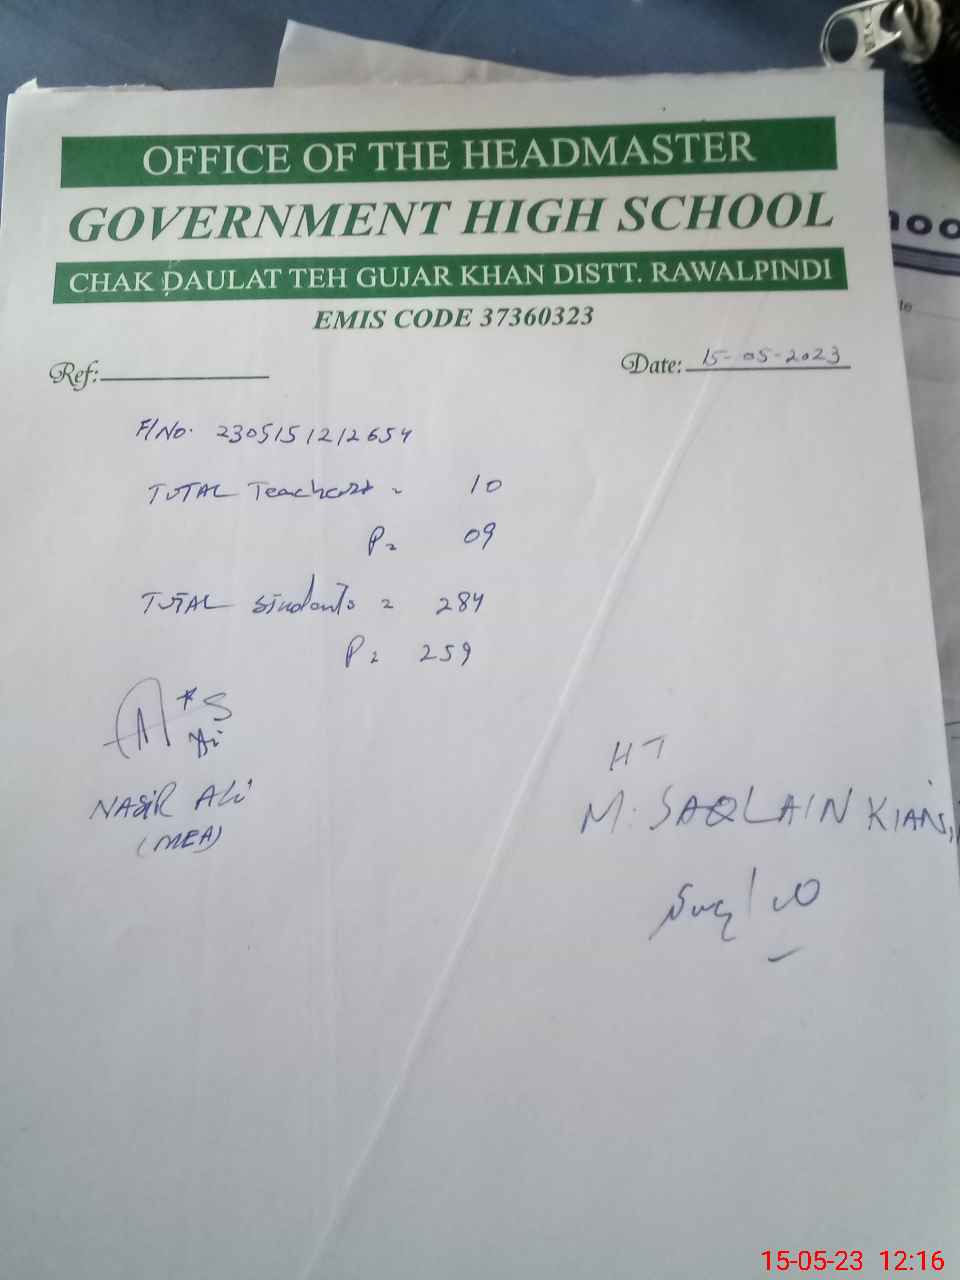 OFFICE OF THE HEADMASTER
GOVERNMENT HIGH SCHOOL
CHAK DAULAT TEH GUJAR KHAN DISTT. RAWALPINDI
EMIS CODE 37360323
Ref:
Date: 15-05-2023
F/No. 2305151212654
TOTAL Teachers = 10
P = 09
TOTAL Students = 284
P = 259
NASIR ALi
(MEA)
HT
M. SAQLAIN KIANI
15-05-23 12:16